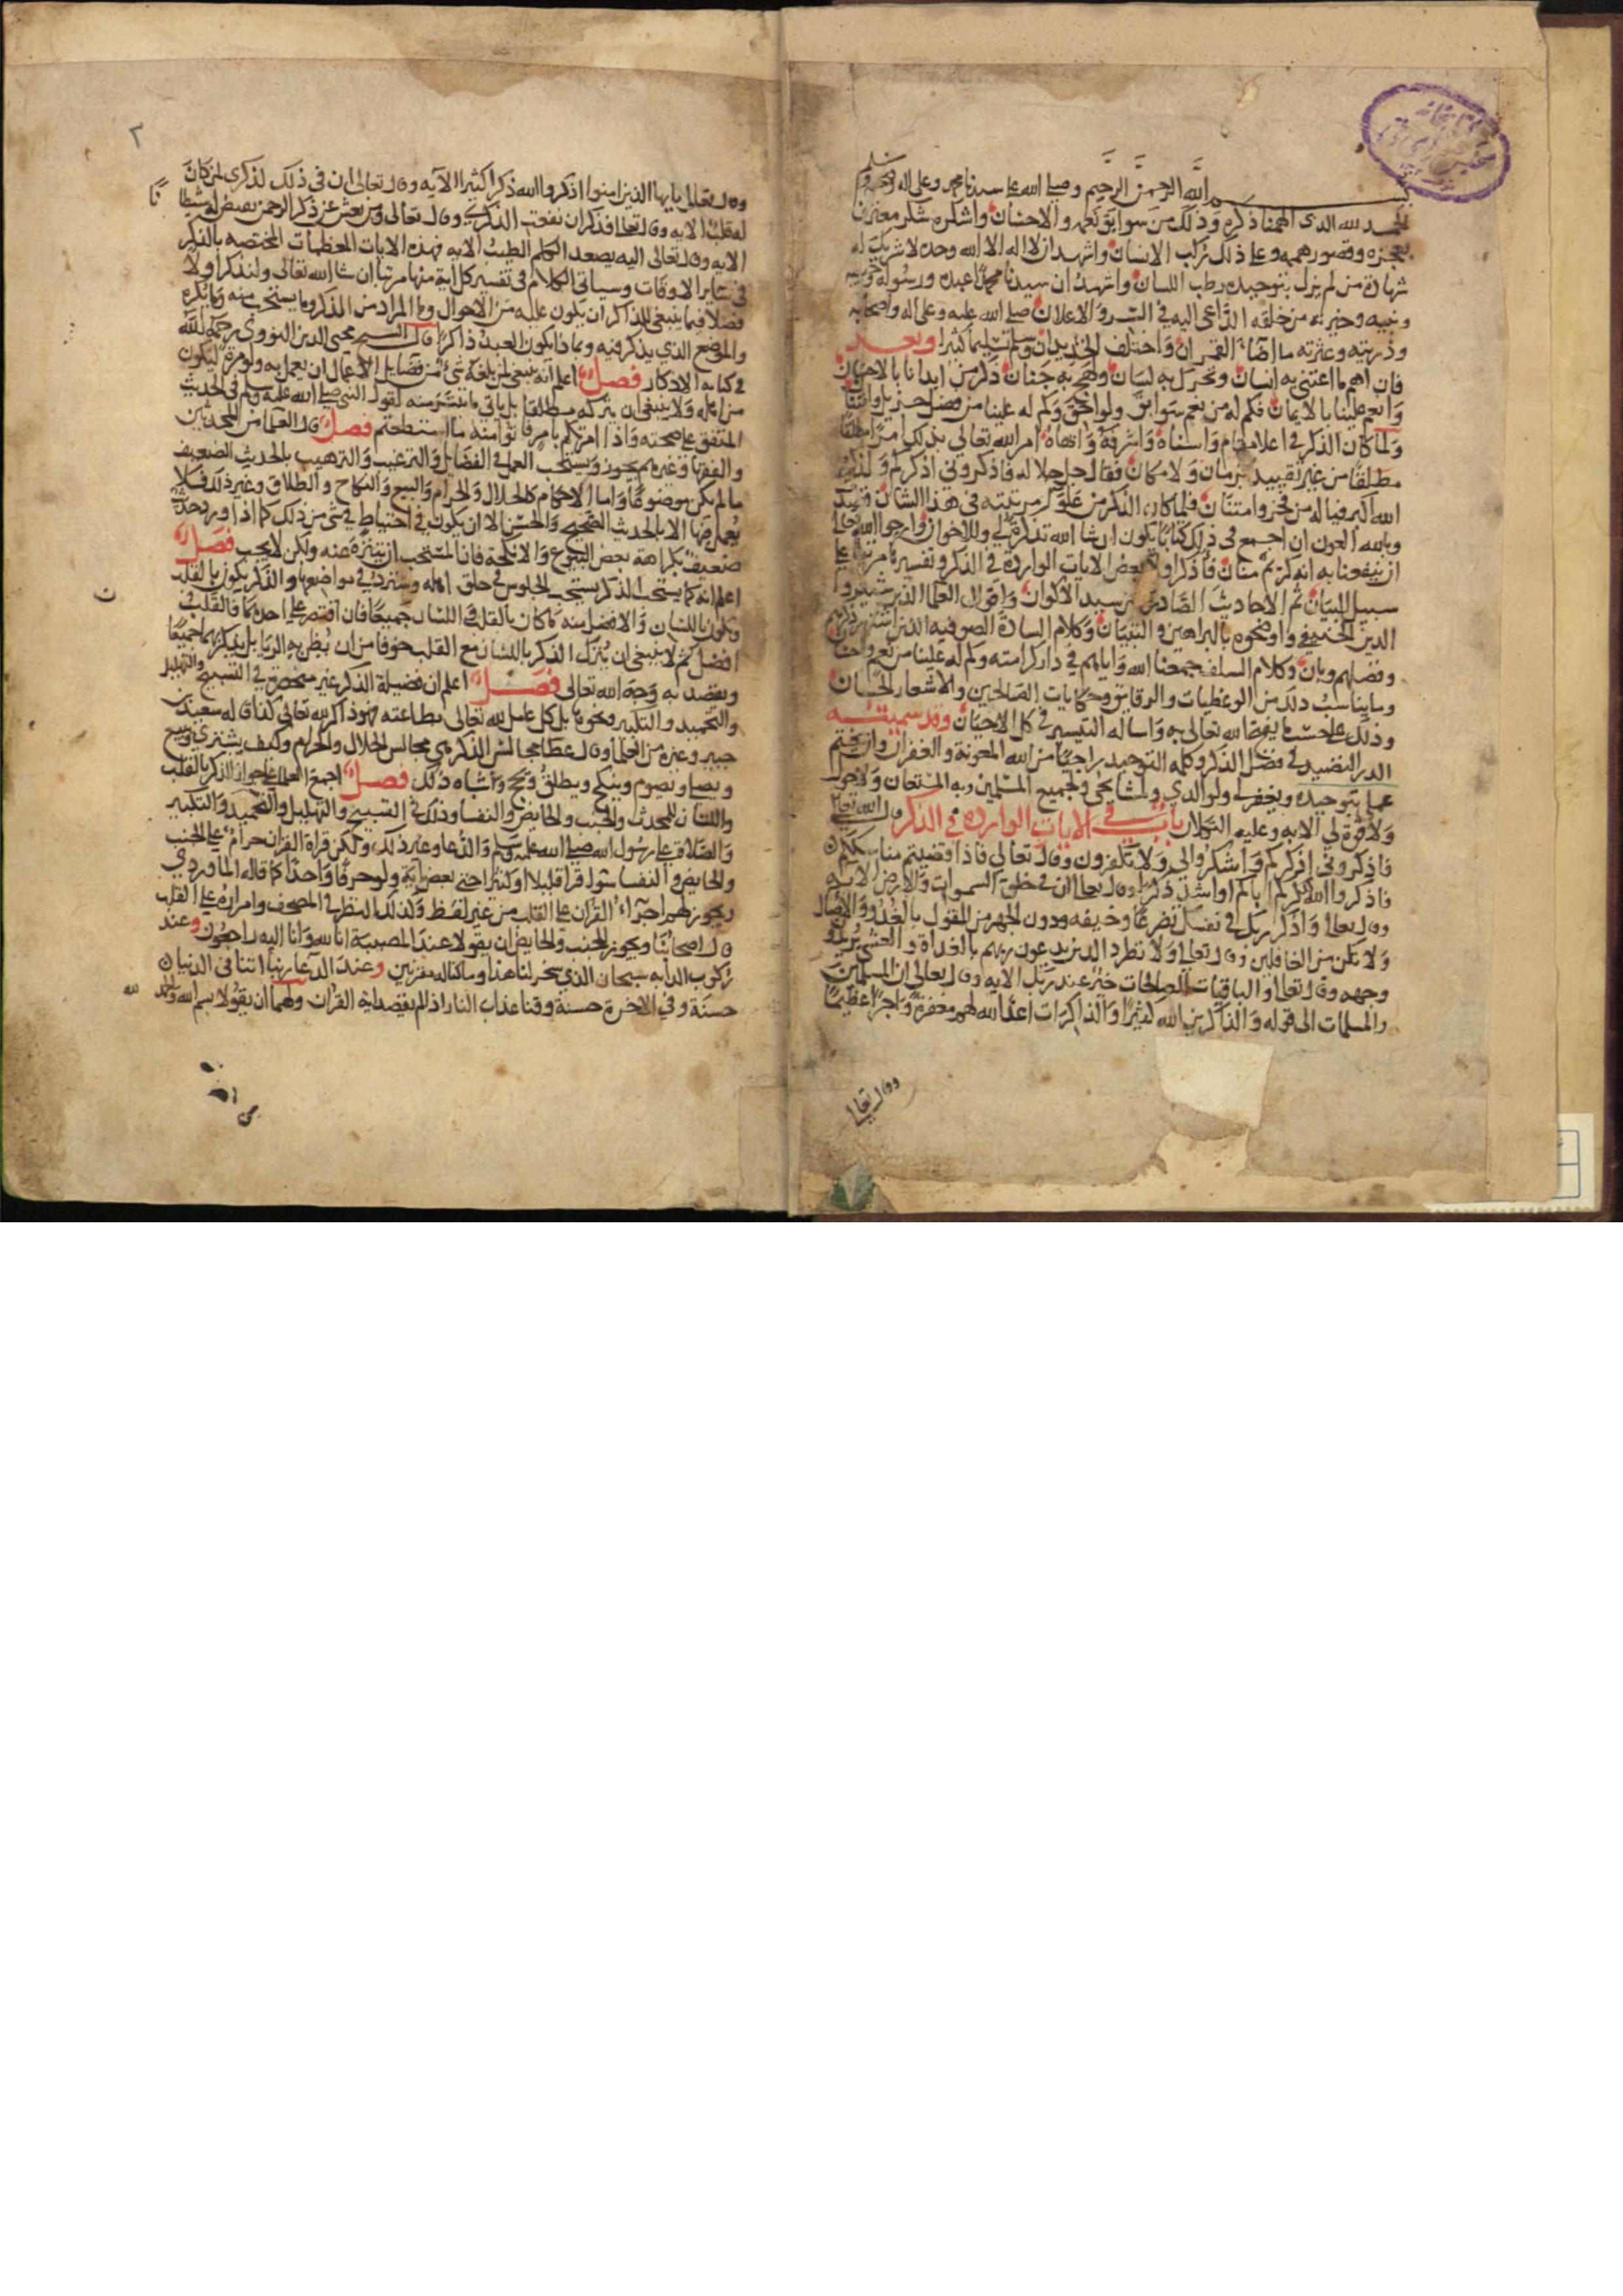 بسم الله الرحمن الرحيم وصلى الله على سيدنا محمد وعلى اله وصحبه وسلم
الحمد لله الذي الهمنا ذكره وذلك من سوابق نعمه والاحسان واشكره شكر معترف
بعجزه وقصور هممه وعلى ذلك تركب الانسان واشهد ان لا اله الا الله وحده لا شريك له
شهادة من لم يزل بتوحيده رطب اللسان واشهد ان سيدنا محمدا عبده ورسوله
ونبيه وخيرته من خلقه الداعي اليه في السر والاعلان صلى الله عليه وعلى اله واصحابه
وذريته وعترته ما اضاء القمران واختلف الجديدان وسلم تسليما كثيرا وبعد
فان اهم ما اعتنى به انسان وتحرك به لسان ولهج به جنان ذكر من ابدانا بالاحسان
وانعم علينا بالايمان فكم له من نعم سوابق ولواحق وكم له علينا من فضل
ولما كان الذكر في اعلا مقام واسناه واشرفه وانهاه امر الله تعالى بذلك امرا مطلقا
مطلقا من غير تقييد بزمان ولا مكان فقال جل جلاله فاذكروني اذكركم ولذكر
الله اكبر فياله من فخر وامتنان فلما كان الذكر من علو مرتبته في هذا الشان
وبالله العون ان اجمع في ذلك كتابا يكون ان شا الله تذكرة لي وللاخوان وارجوا الله تعالى
ان ينفعنا به انه كريم منان فاذكر اولا بعض الايات الواردة في الذكر وتفسيرها مرتبا على
سبيل البيان ثم الاحاديث الصادرة من سيد الاكوان واقوال العلما الذين شيدوا
الدين الحنيفي واوضحوه بالبراهين والتبيان وكلام السادة الصوفيه الذين اشتهر ذكرهم
وفضلهم وبان وكلام السلف جمعنا الله واياهم في دار كرامته وكم له علينا من نعم
وما يناسب ذلك من الوعظيات والرقايق وحكايات الصالحين والاشعار الحسان
وذلك على حسب ما يفتح الله تعالى به واساله التيسير في كل الاحيان وقد سميته
الدر النضيد في فضل الذكر وكلمة التوحيد راجيا من الله المعونة والغفران وان يختم
عملي بتوحيده ويغفر لي ولوالدي ولمشايخي ولجميع المسلمين وبه المستعان ولا حول
ولا قوة لي الا به وعليه التكلان باب في الايات الواردة في الذكر قال الله تعالى
فاذكروني اذكركم واشكروا لي ولا تكفرون وقال تعالى فاذا قضيتم مناسككم
فاذكروا الله كذكركم اباكم او اشد ذكرا وقال تعالى ان في خلق السموات والارض الايه
وقال تعالى واذكر ربك في نفسك تضرعا وخيفه ودون الجهر من القول بالغدو والاصال
ولا تكن من الغافلين وقال تعالى ولا تطرد الذين يدعون ربهم بالغداة والعشي يريدون
وجهه وقال تعالى والباقيات الصالحات خير عند ربك الايه وقال تعالى ان المسلمين
والمسلمات الى قوله والذاكرين الله كثيرا والذاكرات اعد الله لهم مغفرة واجرا عظيما
وقال تعالى
٢
وقال تعالى يايها الذين امنوا اذكروا الله ذكرا كثيرا الايه وقال تعالى ان في ذلك لذكرى لمن كان
له قلب الايه وقال تعالى فذكر ان نفعت الذكرى وقال تعالى ومن يعش عن ذكر الرحمن نقيض له شيطانا
الايه وقال تعالى اليه يصعد الكلم الطيب الايه فهذه الايات المعظمات المختصه بالذكر
في ساير الاوقات وسياتي الكلام في تفسير كل اية منها مرتبا ان شا الله تعالى ولنذكر اولا
فصلا فيما ينبغي للذاكر ان يكون عليه من الاحوال وما المراد من الذكر وما يستحب منه وما يكره
والموضع الذي يذكر فيه وبماذا يكون العبد ذاكرا قال الشيخ محيى الدين النووى رحمه الله
في كتابه الاذكار فصل اعلم انه ينبغي لمن بلغه شي من فضايل الاعمال ان يعمل به ولو مرة ليكون
من اهله ولا ينبغي ان يتركه مطلقا بل ياتي ما تيسر منه لقول النبي صلى الله عليه وسلم في الحديث
المتفق على صحته واذا امرتكم بامر فاتوا منه ما استطعتم فصل قال العلما من المحدثين
والفقها وغيرهم يجوز ويستحب العمل في الفضايل والترغيب والترهيب بالحديث الضعيف
مالم يكن موضوعا واما الاحكام كالحلال والحرام والبيع والنكاح والطلاق وغير ذلك فلا
يعمل فيها الا بالحديث الصحيح والحسن الا ان يكون في احتياط في شي من ذلك كما اذا ورد حديث
ضعيف بكراهة بعض البيوع والانكحة فان المستحب ان يتنزه عنه ولكن لا يجب فصل
اعلم انه كما يستحب الذكر يستحب الجلوس في حلق اهله وسترد في مواضعها والذكر يكون بالقلب
ويكون باللسان والافضل منه ما كان بالقلب واللسان جميعا فان اقتصر على احدهما فالقلب
افضل ثم لا ينبغي ان يترك الذكر باللسان مع القلب خوفا من ان يظن به الريا بل يذكر بهما جميعا
ويقصد به وجه الله تعالى فصل اعلم ان فضيلة الذكر غير منحصرة في التسبيح والتهليل
والتحميد والتكبير ونحوها بل كل عامل لله تعالى بطاعته فهو ذاكر لله تعالى كذا قاله سعيد بن
جبير وغيره من العلما وقال عطا مجالس الذكر هي مجالس الحلال والحرام وكيف يشتري ويبيع
ويصلي ويصوم وينكح ويطلق ويحج واشباه ذلك فصل اجمع العلما على جواز الذكر بالقلب
واللسان للمحدث والجنب والحايض والنفسا وذلك في التسبيح والتهليل والتحميد والتكبير
والصلاة على رسول الله صلى الله عليه وسلم والدعا وغير ذلك ولكن قراة القران حرام على الجنب
والحايض والنفسا سوا قرا قليلا او كثيرا حتى بعض اية ولو حرفا واحدا كما قاله الماوردي
ويجوز لهم اجراء القران على القلب من غير لفظ وكذلك النظر في المصحف وامراره على القلب
قال اصحابنا ويجوز للجنب والحايض ان يقولا عند المصيبة انا لله وانا اليه راجعون وعند
ركوب الدابه سبحان الذي سخر لنا هذا وما كنا له مقرنين وعند الدعا ربنا اتنا في الدنيا
حسنة وفي الاخرة حسنة وقنا عذاب النار اذا لم يقصدا به القران ولهما ان يقولا بسم الله والحمد لله